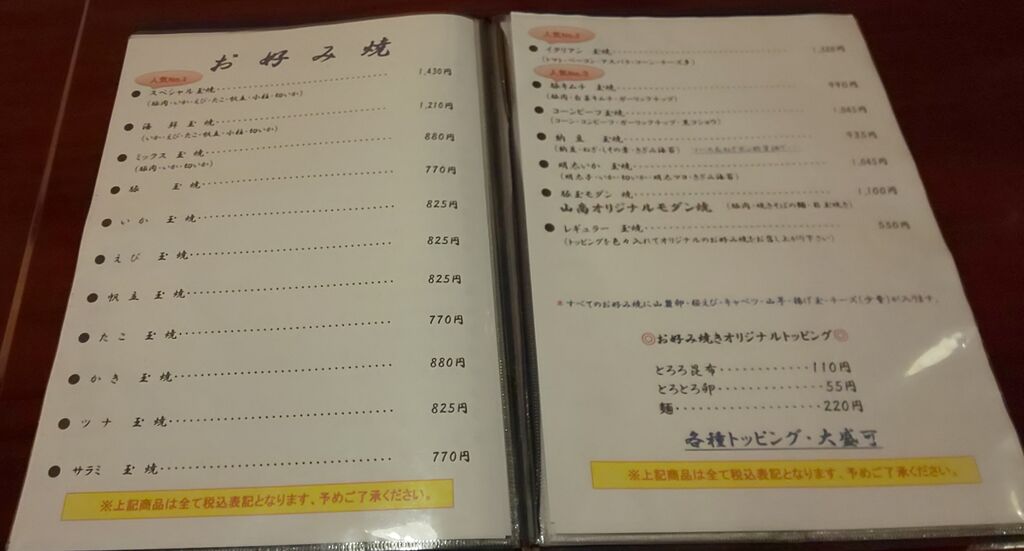 お好み焼
人気No.1
● スペシャル玉焼 1,430円
(豚肉・いか・えび・たこ・帆立・小柱・切いか)
● 海鮮玉焼 1,210円
(いか・えび・たこ・帆立・小柱・切いか)
● ミックス 玉焼 880円
(豚肉・いか・切いか)
● 豚 玉焼 770円
● いか 玉焼 825円
● えび 玉焼 825円
● 帆立 玉焼 825円
● たこ 玉焼 770円
● かき 玉焼 880円
● ツナ 玉焼 825円
● サラミ 玉焼 770円
※上記商品は全て税込表記となります、予めご了承ください。
人気No.2
● イタリアン 玉焼
(トマト・ベーコン・アスパラ・コーン・チーズ多)
人気No.3
● 豚キムチ 玉焼 990円
(豚肉・白菜キムチ・ガーリックチップ)
● コーンビーフ玉焼 1,045円
(コーン・コンビーフ・ガーリックチップ・黒コショウ)
● 納豆 玉焼 935円
(納豆・ねぎ・しその葉・きざみ海苔)
● 明太いか 玉焼 1,045円
(明太子・いか・切いか・明太マヨ・きざみ海苔)
● 豚玉モダン 焼 1,100円
山高オリジナルモダン焼 (豚肉・焼きそばの麺・目玉焼き)
● レギュラー 玉焼 550円
(トッピングを色々入れてオリジナルのお好み焼をお召し上がり下さい)
*すべてのお好み焼に山芋・卵・桜えび・キャベツ・揚げ玉・チーズ(少量)が入ります。
◎お好み焼きオリジナルトッピング◎
とろろ昆布 110円
とろとろ卵 55円
麺 220円
各種トッピング・大盛可
※上記商品は全て税込表記となります、予めご了承ください。